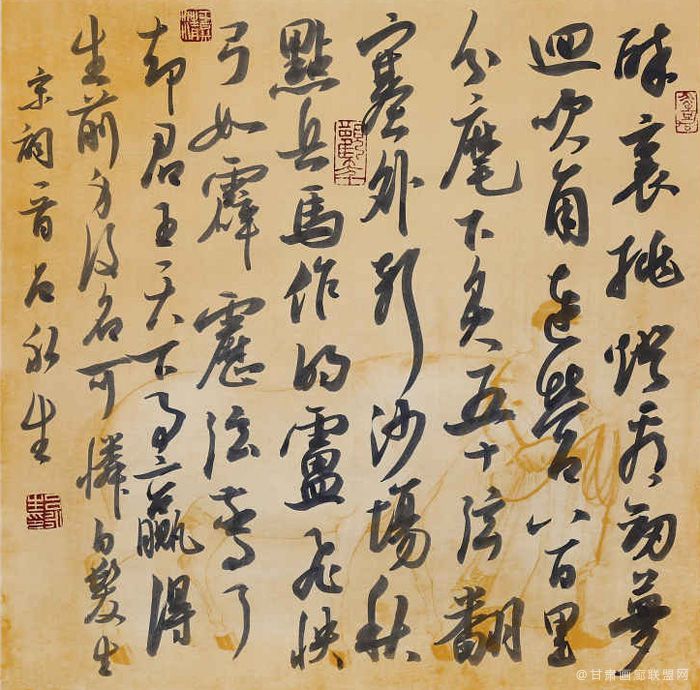 醉裏挑燈看劍夢
迴吹角連營八百里
分麾下炙五十弦翻
塞外聲沙場秋
點兵馬作的盧飛快
弓如霹靂弦驚了
却君王天下事贏得
生前身後名可憐白髮生
宋詞一首石永生
@甘肃画廊联盟网